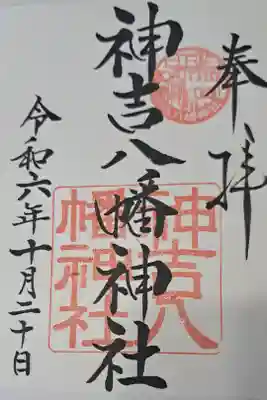 奉拝
神吉八幡神社
令和六年十月二十日
神吉八
幡神社